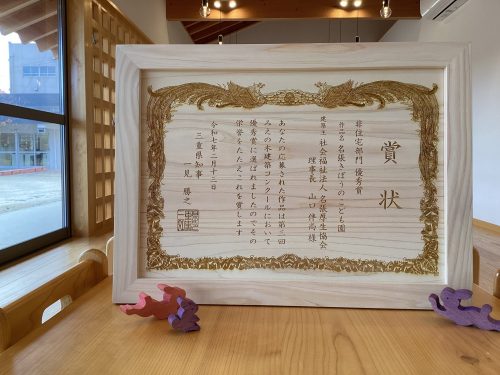 賞状
非住宅部門 優秀賞
作品名 名張きぼうのこども園
建築主 社会福祉法人 名張厚生協会
理事長 山口 伴尚 様
あなたの応募された作品は第三回
みえの木建築コンクールにおいて
優秀賞に選ばれましたのでその
栄誉をたたえこれを賞します
令和七年二月十三日
三重県知事 一見 勝之